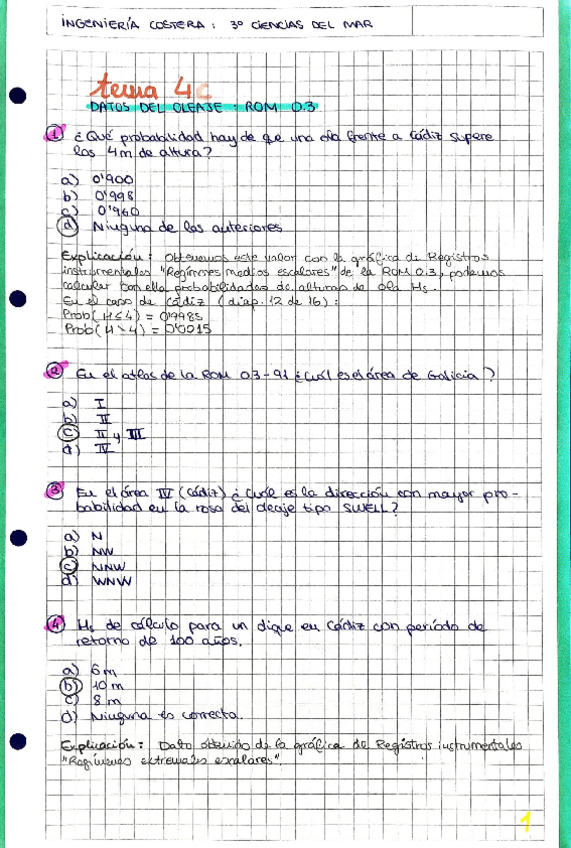 INGENIERÍA COSTERA: 3º CIENCIAS DEL MAR
tema 4c
DATOS DEL OLEAJE: ROM 0.3
1 ¿Qué probabilidad hay de que una ola frente a Cádiz supere
los 4m de altura?
a) 0'900
b) 0'998
c) 0'960
d) Ninguna de las anteriores
Explicación: Obtenemos este valor con la gráfica de Registros
instrumentales "Regímenes medios escalares" de la ROM 0.3, podemos
calcular con ella probabilidades de alturas de ola Hs.
En el caso de Cádiz (diap. 12 de 16):
Prob(H≤4) = 0'9985
Prob(H>4) = 0'0015
2 En el atlas de la ROM 0.3-91 ¿Cuál es el área de Galicia?
a) I
b) II
c) II y III
d) IV
3 En el área IV (Cádiz) ¿cuál es la dirección con mayor pro-
babilidad en la rosa del oleaje tipo SWELL?
a) N
b) NW
c) NNW
d) WNW
4 Hs de cálculo para un dique en Cádiz con período de
retorno de 100 años.
a) 6m
b) 10m
c) 8m
d) Ninguna es correcta.
Explicación: Dato obtenido de la gráfica de Registros instrumentales
"Regímenes extremales escalares".
1